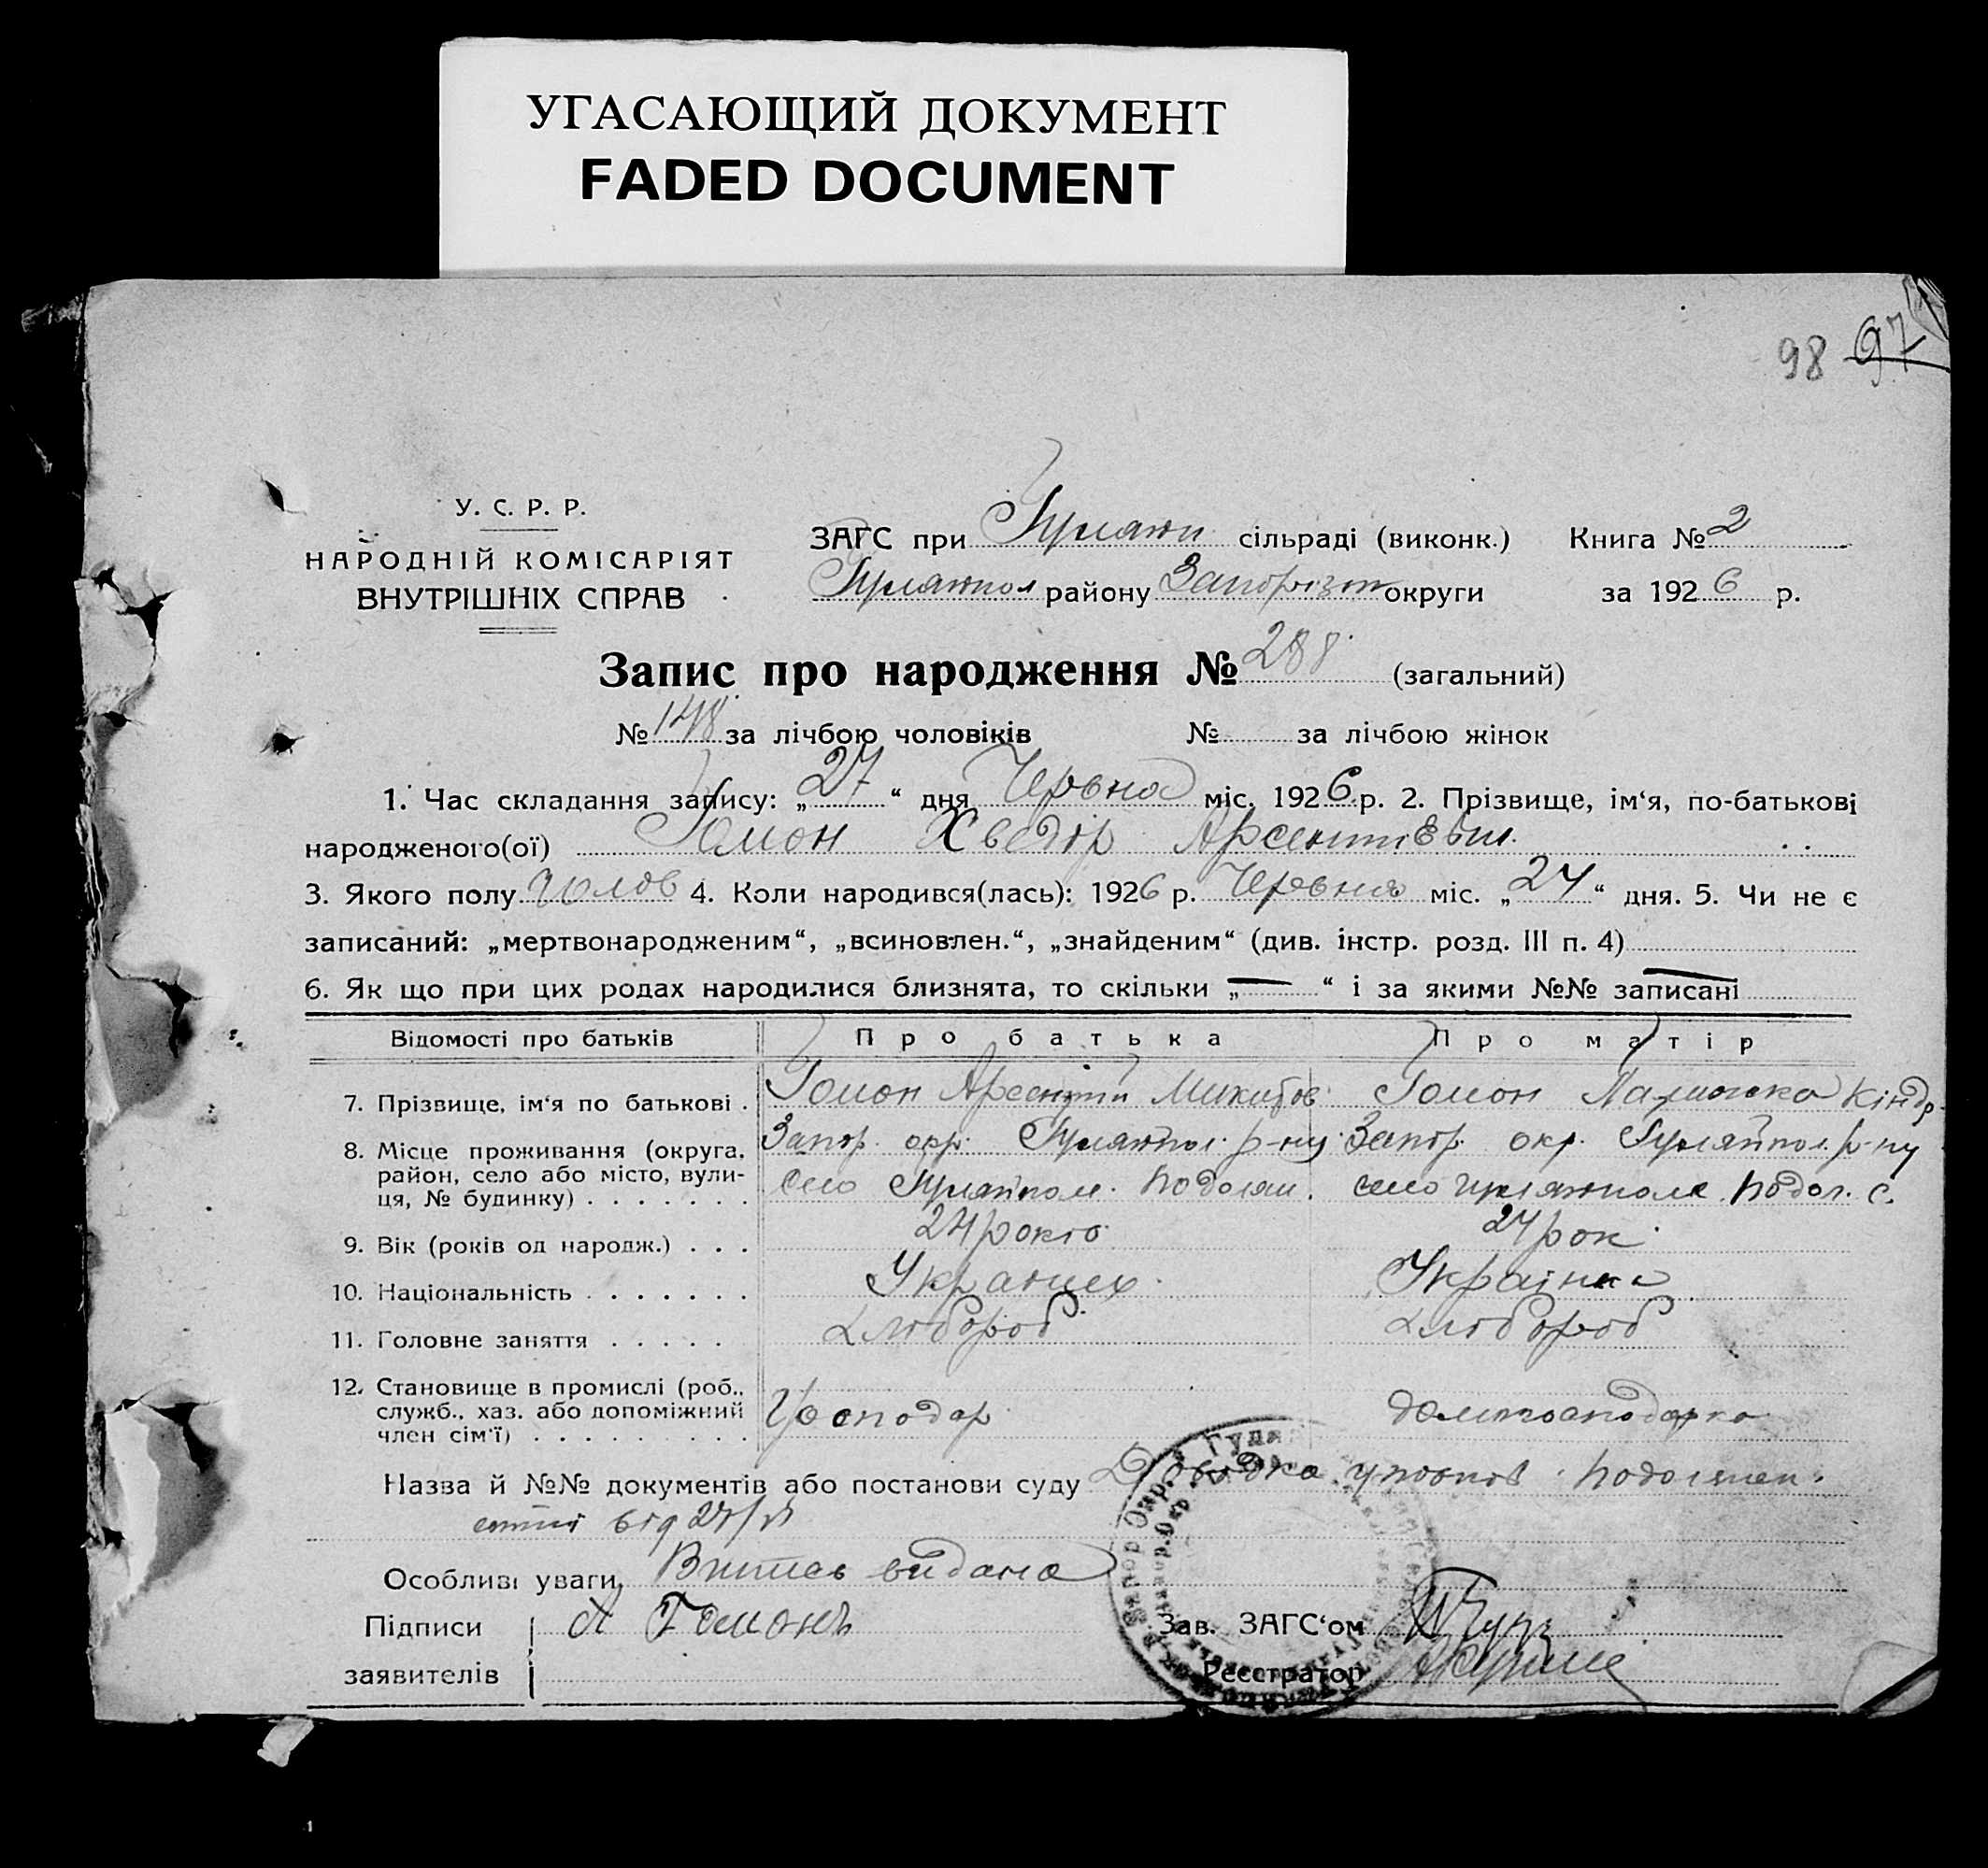 УГАСАЮЩИЙ ДОКУМЕНТ
FADED DOCUMENT
98 97
У. С. Р. Р.
НАРОДНІЙ КОМІСАРІЯТ
ВНУТРІШНІХ СПРАВ
ЗАГС при Гуляйп сільраді (виконк.) Книга № 2
Гуляйпол району Запорізьк округи за 1926 р.
Запис про народження № 288 (загальний)
№ 148 за лічбою чоловіків № за лічбою жінок
1. Час складання запису: „27“ дня Червня міс. 1926 р. 2. Прізвище, ім‘я, по-батькові
народженого(ої) Гомон Хведір Арсентієвич
3. Якого полу чолов 4. Коли народився(лась): 1926 р. Червня міс. „24“ дня. 5. Чи не є
записаний: „мертвонародженим“, „всиновлен.“, „знайденим“ (див. інстр. розд. III п. 4)
6. Як що при цих родах народилися близнята, то скільки „—“ і за якими №№ записані —
Відомості про батьків Про батька Про матір
7. Прізвище, ім‘я по батькові . Гомон Арсентій Микитов Гомон Палажка Кіндр
8. Місце проживання (округа, район, село або місто, вули-ця, № будинку) . . . . . . .
Запор. окр. Гуляйпол. р-ну Запор. окр. Гуляйпол. р-ну
село Гуляйполе Подолян. село Гуляйполе Подол. с.
9. Вік (років од народж.) . . . 24 роки 24 рок.
10. Національність . . . . . . . Українець Українка
11. Головне заняття . . . . . хлібороб хлібороб
12. Становище в промислі (роб., служб., хаз. або допоміжний член сім‘ї) . . . . . . . . .
Господар домгосподарка
Назва й №№ документів або постанови суду Довідка Подолянск.
від 27/VI
Особливі уваги Витяг видано
Підписи А Гомонъ Зав. ЗАГС‘ом
заявителів Реєстратор